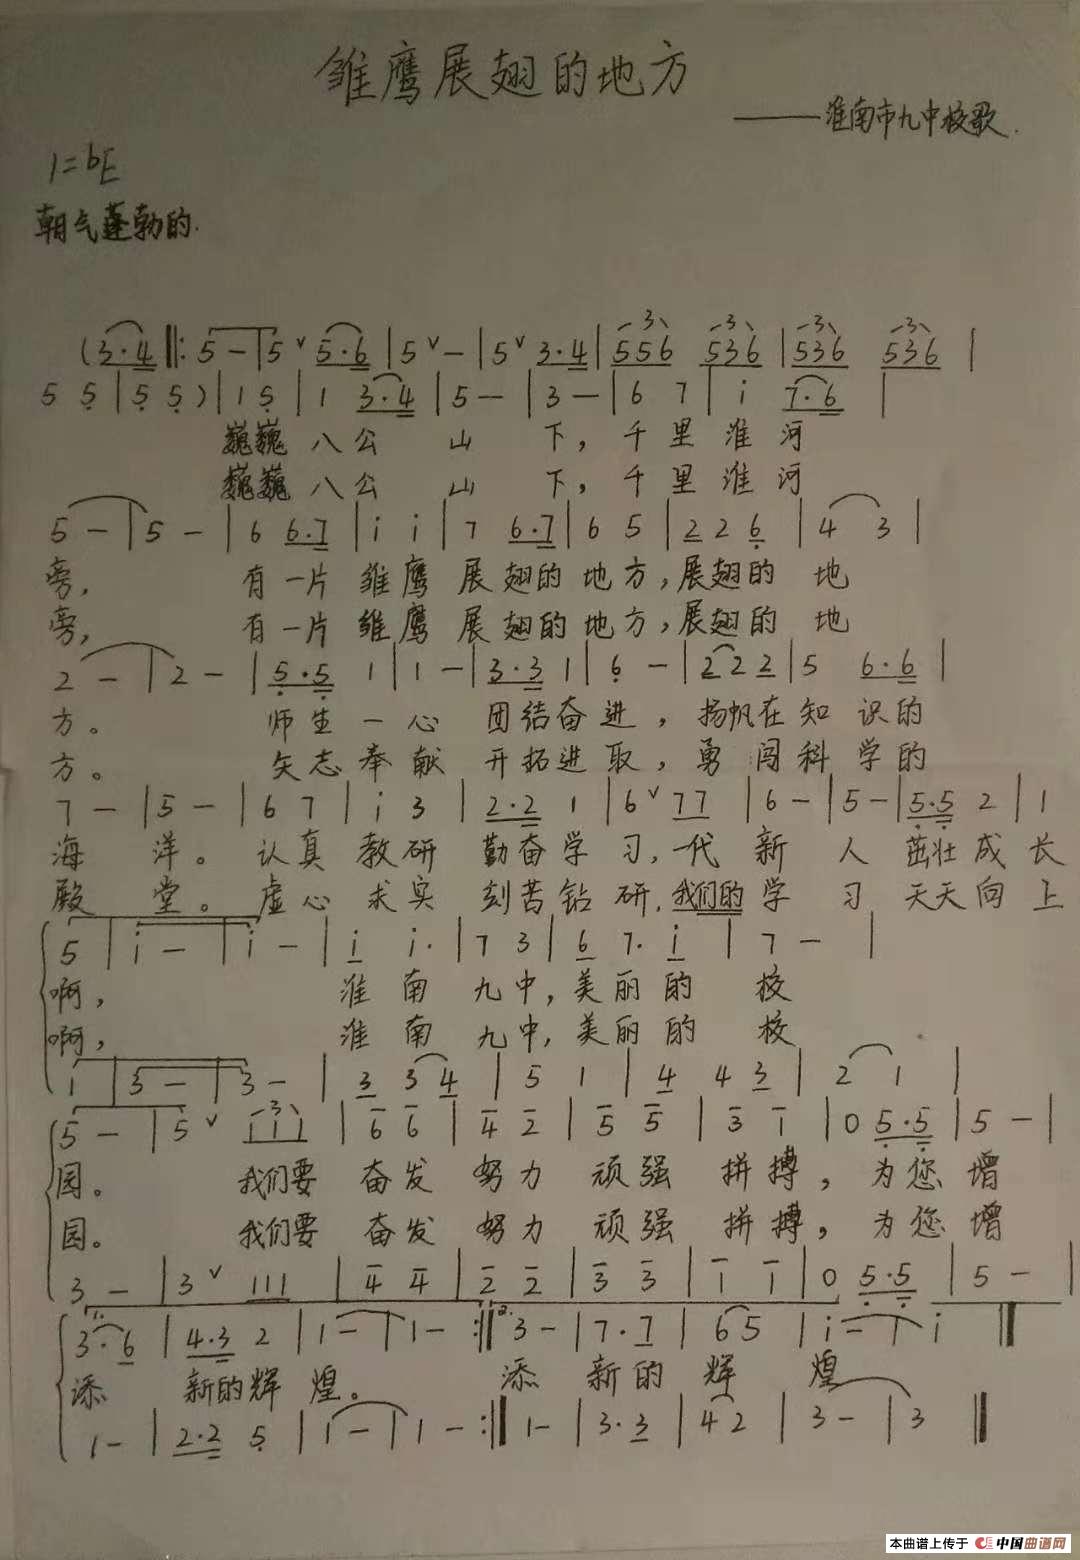 雏鹰展翅的地方
——淮南市九中校歌.
1=bE
朝气蓬勃的.
(3·4 ‖: 5 — | 5 ˅ 5·6 | 5 ˅ — | 5 ˅ 3·4 | 556 536 | 536 536 |
5 5 | 5 5 ) | 1 5 | 1 3·4 | 5 — | 3 — | 6 7 | i 7·6 |
巍巍 八公 山 下, 千里淮河
巍巍 八公 山 下, 千里淮河
5 — | 5 — | 6 6·7 | i i | 7 6·7 | 6 5 | 2 2 6 | 4 3 |
旁, 有一片 雏鹰 展翅的地方,展翅的 地
旁, 有一片 雏鹰 展翅的地方,展翅的 地
2 — | 2 — | 5·5 1 | 1 — | 3·3 1 | 6 — | 2 2 2 | 5 6·6 |
方。 师生一心 团结奋进, 扬帆在知识的
方。 矢志奉献 开拓进取, 勇闯科学的
7 — | 5 — | 6 7 | i 3 | 2·2 1 | 6 ˅ 7 7 | 6 — | 5 — | 5·5 2 | 1
海洋。认真教研 勤奋学习,一代新人 茁壮成长
殿堂。虚心求实 刻苦钻研,我们的学习 天天向上
5 | i — | i — | i i· | 7 3 | 6 7· i | 7 — |
啊, 淮南九中,美丽的 校
啊, 淮南九中,美丽的 校
1 | 3 — | 3 — | 3 3 4 | 5 1 | 4 4 3 | 2 1 |
5 — | 5 ˅ 1 1 1 | 6 6 | 4 2 | 5 5 | 3 1 | 0 5·5 | 5 — |
园。 我们要 奋发 努力 顽强 拼搏, 为您增
园。 我们要 奋发 努力 顽强 拼搏, 为您增
3 — | 3 ˅ 1 1 1 | 4 4 | 2 2 | 3 3 | 1 1 | 0 5·5 | 5 — |
1. 3·6 | 4·3 2 | 1 — | 1 — :‖ 2. 3 — | 7·7 | 6 5 | i — | i ‖
添 新的辉煌。 添 新的 辉 煌
1 — | 2·2 5 | 1 — | 1 — :‖ 1 — | 3·3 | 4 2 | 3 — | 3 ‖
本曲谱上传于 中国曲谱网